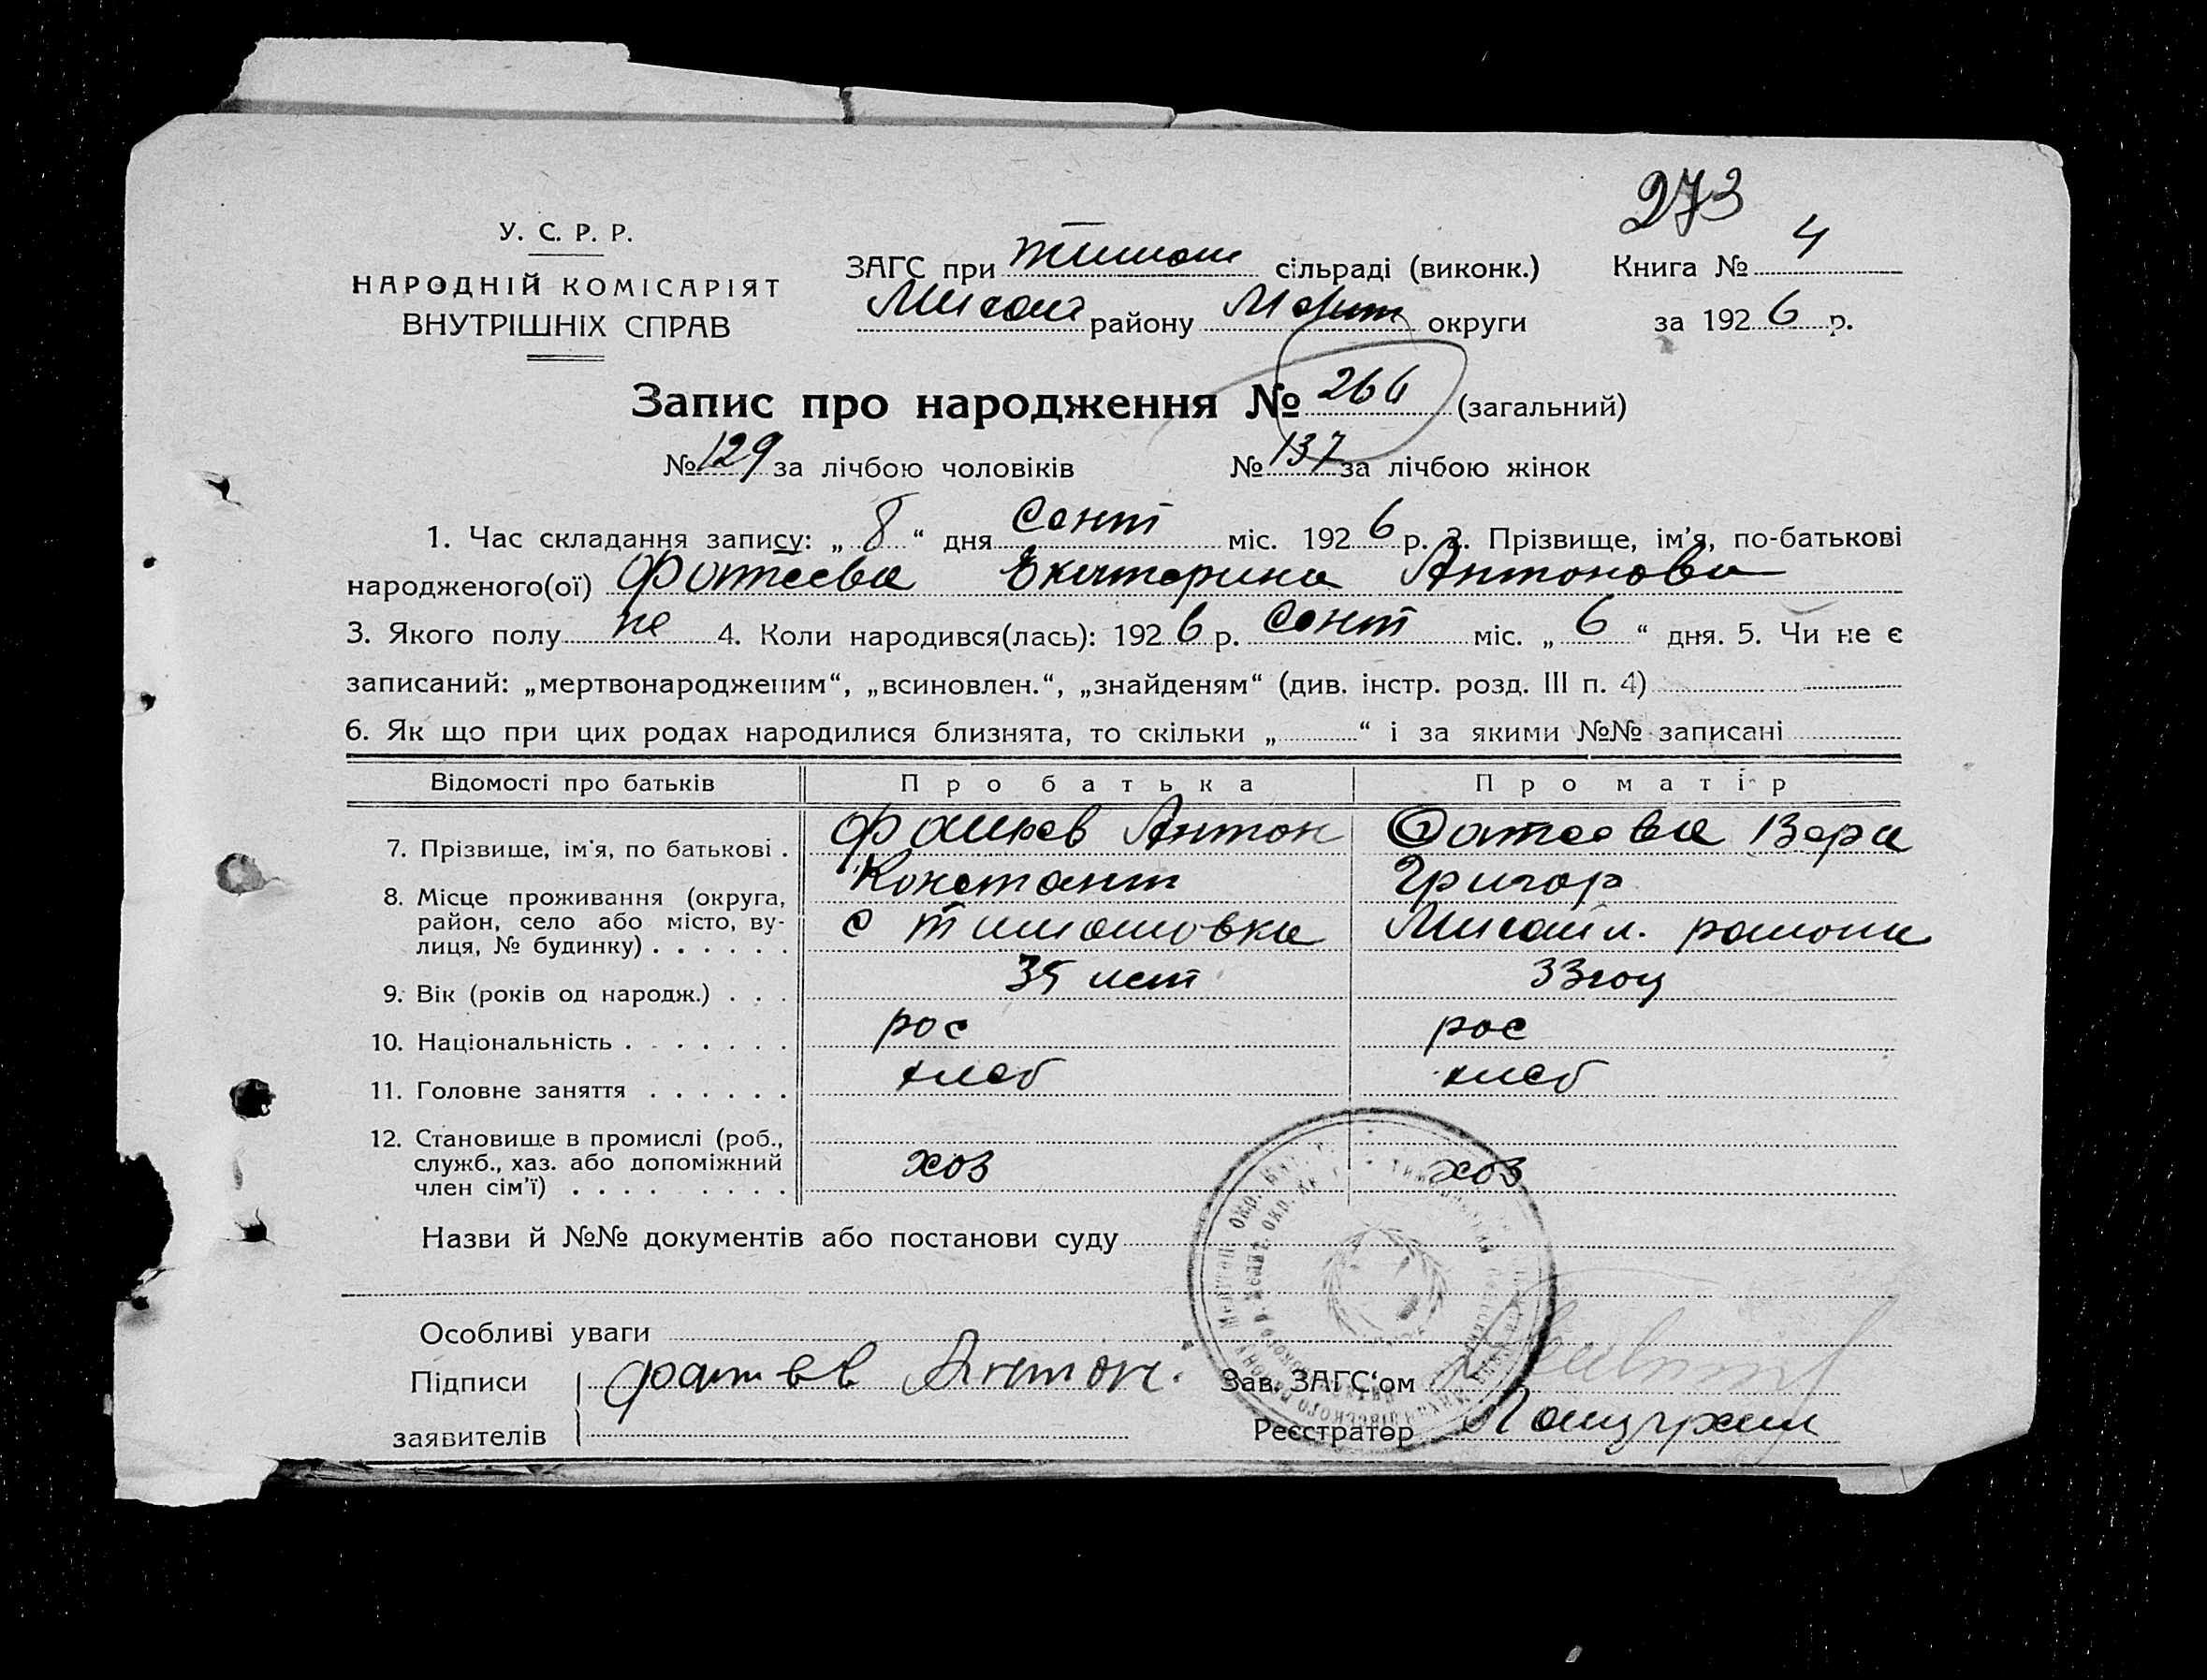 273
У. С. Р. Р.
НАРОДНІЙ КОМІСАРІЯТ
ВНУТРІШНІХ СПРАВ
ЗАГС при Тимош сільраді (виконк.) Книга № 4
Михай району Меліт округи за 1926 р.
Запис про народження № 266 (загальний)
№ 129 за лічбою чоловіків № 137 за лічбою жінок
1. Час складання запису: „ 8 “ дня Сент міс. 1926 р. 2. Прізвище, ім’я, по-батькові
народженого(ої) Фатеева Екатерина Антонова
3. Якого полу же 4. Коли народився(лась): 1926 р. Сент міс. „ 6 “ дня. 5. Чи не є
записаний: „мертвонародженим“, „всиновлен.“, „знайденям“ (див. інстр. розд. III п. 4)
6. Як що при цих родах народилися близнята, то скільки „ “ і за якими №№ записані
Відомості про батьків Про батька Про матір
7. Прізвище, ім’я, по батькові . Фатеев Антон Фатеева Вера
Констант Григор
8. Місце проживання (округа, район, село або місто, ву-лиця, № будинку) . . . . . . с Тимошовка Михайл. района
9. Вік (років од народж.) . . . 35 лет 33 год
10. Національність . . . . . . . рос рос
11. Головне заняття . . . . . . хлеб хлеб
12. Становище в промислі (роб.,
служб., хаз. або допоміжний
член сім’ї) . . . . . . . . . хоз хоз
Назви й №№ документів або постанови суду
Особливі уваги
Підписи Фатеев Антон. Зав. ЗАГС‘ом
заявителів Реєстратор